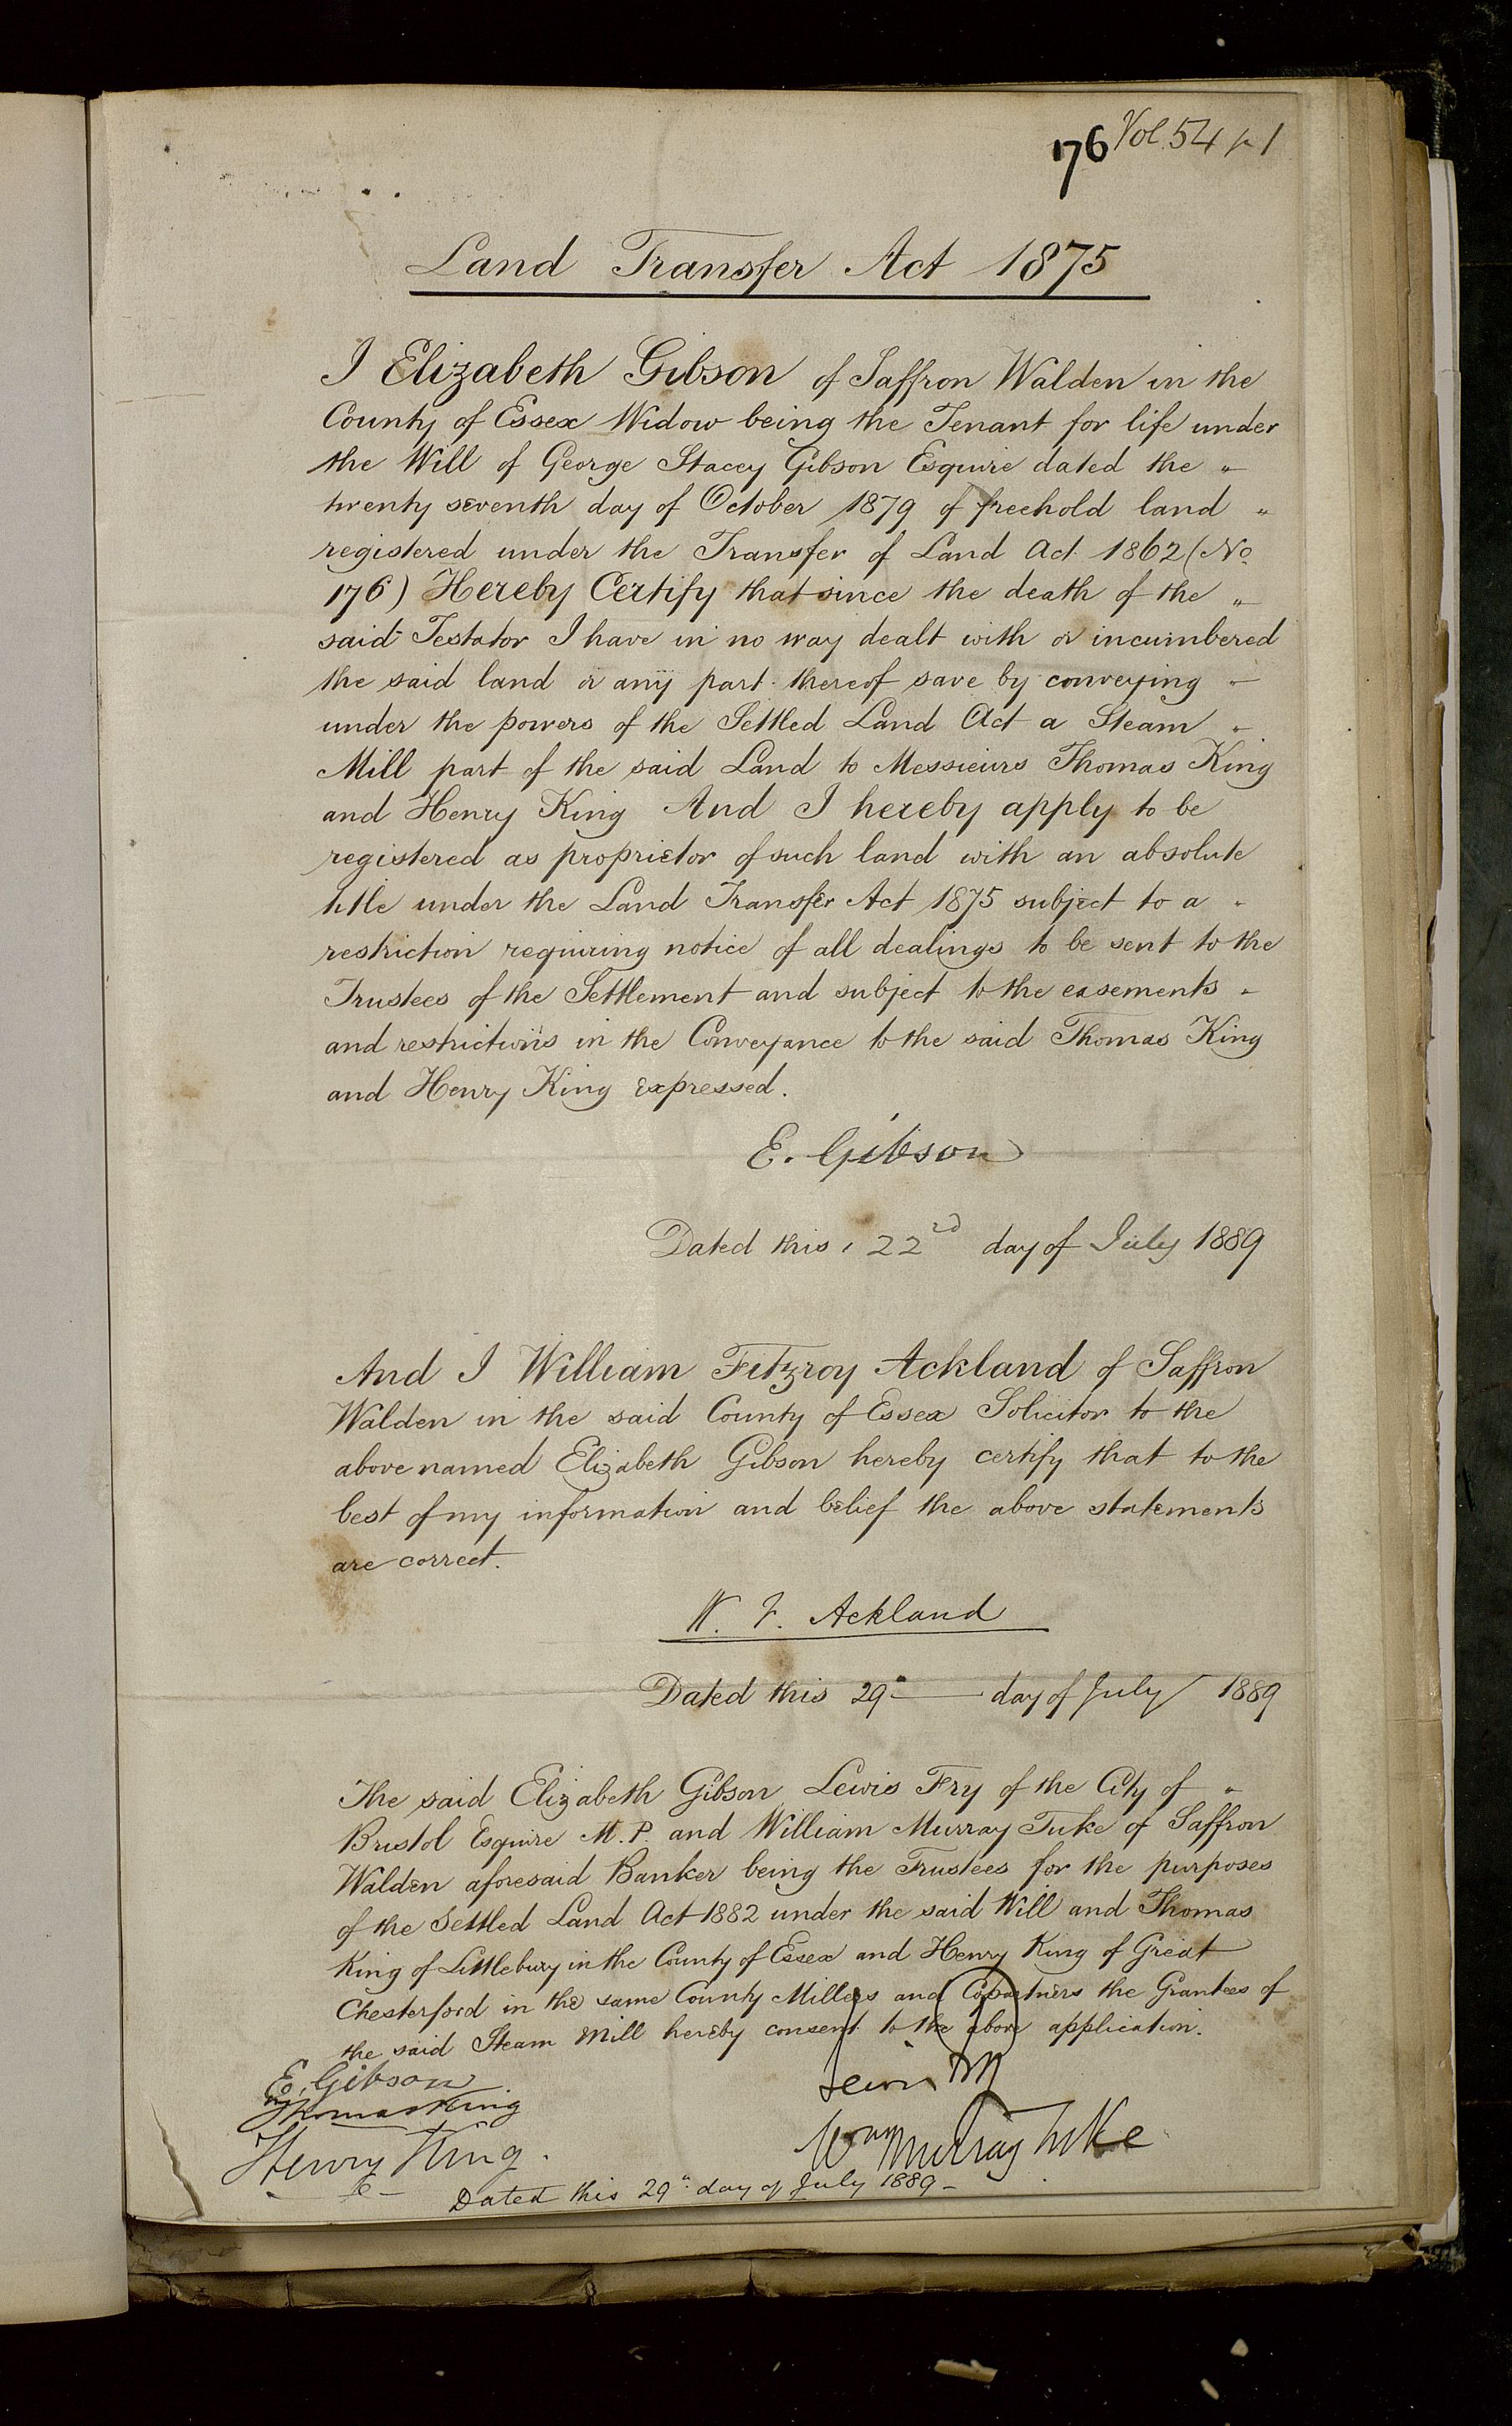 176 Vol. 54 p 1
Land Transfer Act 1875
I Elizabeth Gibson of Saffron Walden in the
County of Essex Widow being the Tenant for life under
the Will of George Stacey Gibson Esquire dated the "
twenty seventh day of October 1879 of freehold land "
registered under the Transfer of Land Act 1862 (No.
176) Hereby Certify that since the death of the "
said Testator I have in no way dealt with or incumbered
the said land or any part thereof save by conveying -
under the powers of the Settled Land Act a Steam "
Mill part of the said Land to Messieurs Thomas King
and Henry King And I hereby apply to be
registered as proprietor of such land with an absolute
title under the Land Transfer Act 1875 subject to a -
restriction requiring notice of all dealings to be sent to the
Trustees of the Settlement and subject to the easements -
and restrictions in the Conveyance to the said Thomas King
and Henry King expressed.
E. Gibson
Dated this 22nd day of July 1889
And I William Fitzroy Ackland of Saffron
Walden in the said County of Essex Solicitor to the
above named Elizabeth Gibson hereby certify that to the
best of my information and belief the above statements
are correct.
W. F. Ackland
Dated this 29th day of July 1889
The said Elizabeth Gibson Lewis Fry of the City of "
Bristol Esquire M.P. and William Murray Tuke of Saffron
Walden aforesaid Banker being the Trustees for the purposes
of the Settled Land Act 1882 under the said Will and Thomas
King of Littlebury in the County of Essex and Henry King of Great
Chesterford in the same County Millers and Copartners the Grantees of
the said Steam Mill hereby consent to the above application.
E. Gibson
Thomas King
Henry King.
Lewis Fry
Wm Murray Tuke
Dated this 29th day of July 1889 -